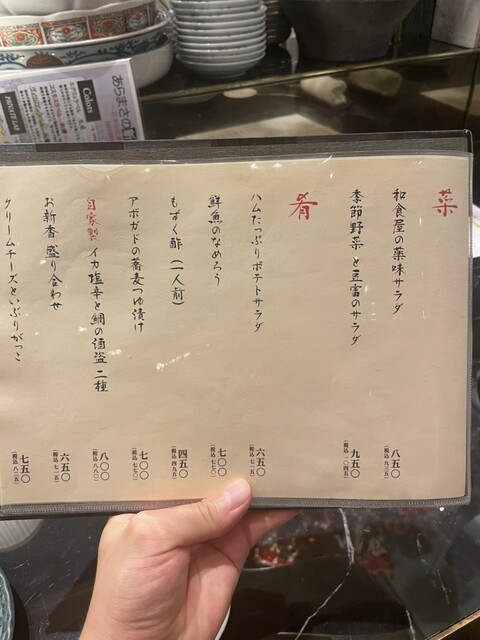 菜
和食屋の薬味サラダ 八五〇
(税込 九三五)
季節野菜と豆富のサラダ 九五〇
(税込 一〇四五)
肴
ハムたっぷりポテトサラダ 六五〇
(税込 七一五)
鮮魚のなめろう 七〇〇
(税込 七七〇)
もずく酢(一人前) 四五〇
(税込 四九五)
アボガドの蕎麦つゆ漬け 七〇〇
(税込 七七〇)
自家製 イカ塩辛と鯛の酒盗 二種 八〇〇
(税込 八八〇)
お新香盛り合わせ 六五〇
(税込 七一五)
クリームチーズといぶりがっこ 七五〇
(税込 八二五)
あらまさの
Colors
PRIVATE LAB